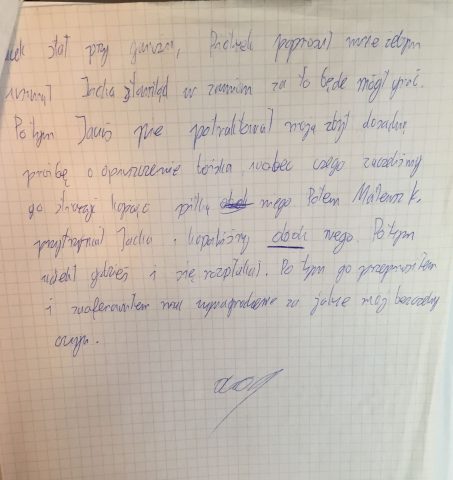 stał przy garażu, poprosił mnie żebym
Jacka stamtąd w zamian za to będę mógł grać.
Po tym Jacuś nie potraktował moją zbyt dosadną
prośbę o opuszczenie boiska, wobec czego zaczęliśmy
go kopiąc piłką obok niego. Potem Mateusz K.
przytrzymał Jacka i kopaliśmy obok niego. Po tym
uciekł gdzieś i się rozpłakał. Po tym go przeprosiłem
i zaoferowałem mu wynagrodzenie za jakże mój bezczelny
czyn.